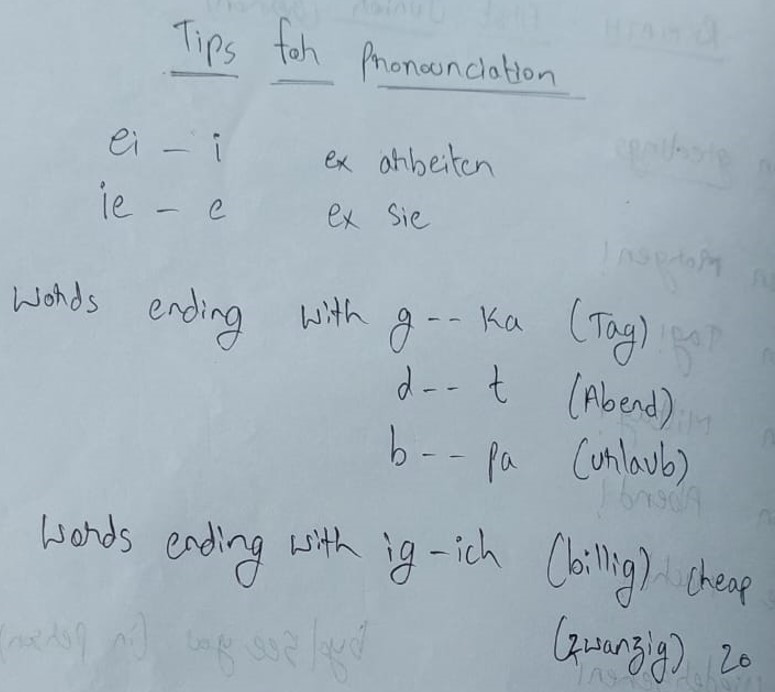 Tips for Pronounciation
ei - i ex arbeiten
ie - e ex sie
Words ending with g -- Ka (Tag)
d -- t (Abend)
b -- pa (Urlaub)
Words ending with ig - ich (billig) cheap
(zwanzig) 20